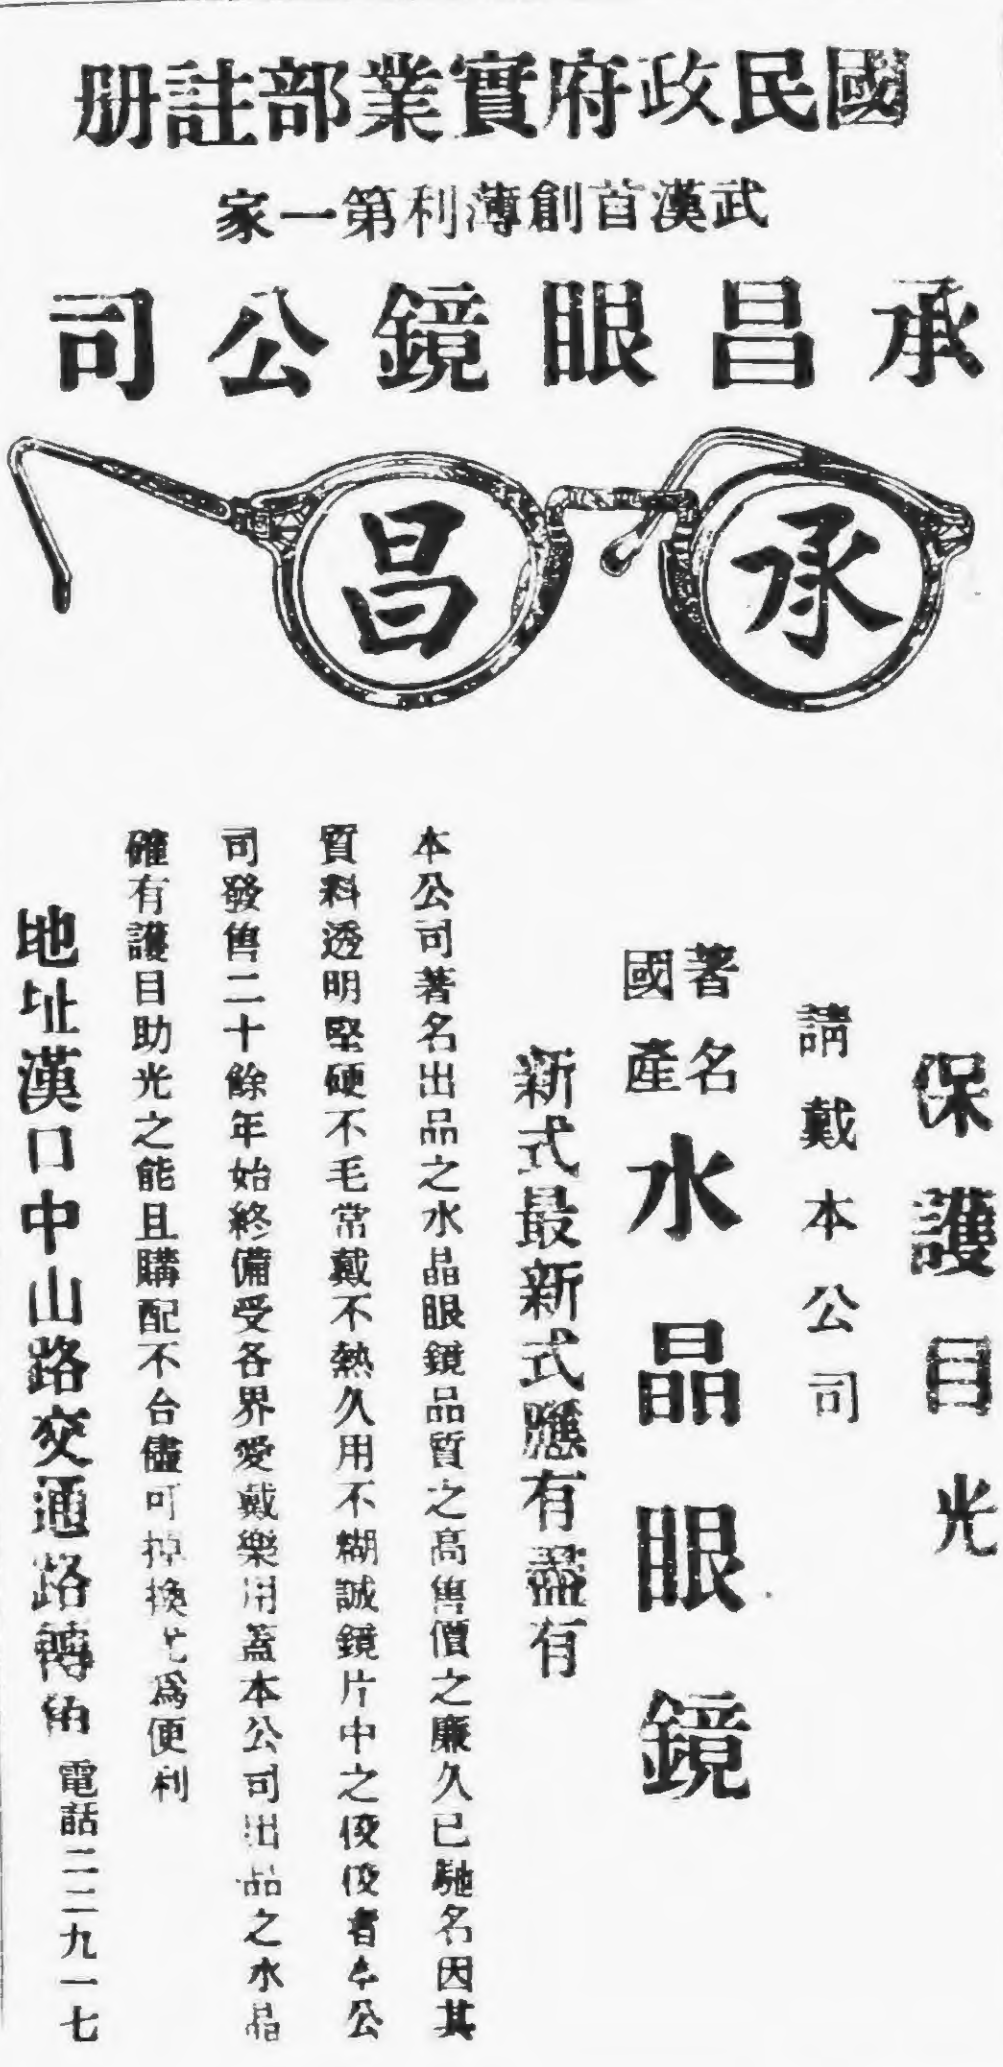 國民政府實業部註册
武漢首創薄利第一家
承昌眼鏡公司
承昌
保護目光
請戴本公司
著名
國產
水晶眼鏡
新式最新式應有盡有
本公司著名出品之水晶眼鏡品質之高售價之廉久已馳名因其
質料透明堅硬不毛常戴不熱久用不糊誠鏡片中之佼佼者本公
司發售二十餘年始終備受各界愛戴樂用蓋本公司出品之水晶
確有護目助光之能且購配不合儘可掉換尤為便利
地址漢口中山路交通路轉角
電話二二九一七